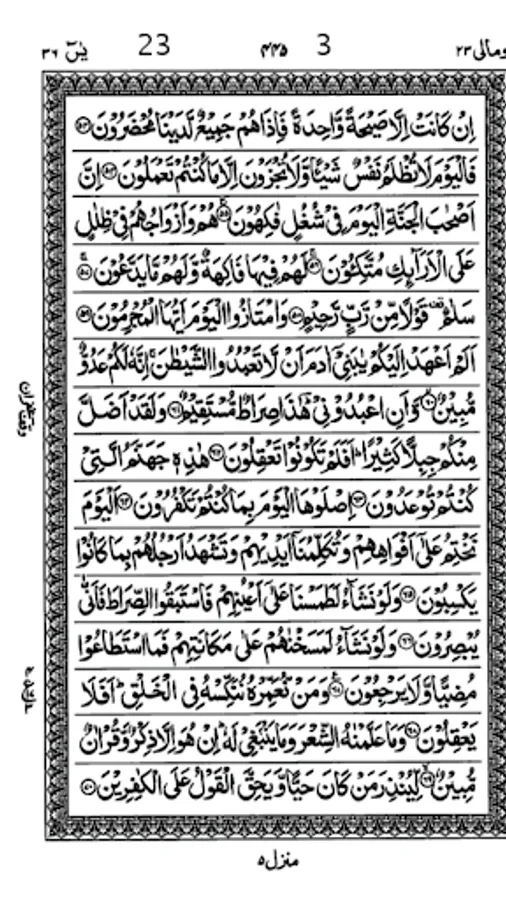 ومالی ٢٣ 3 ۴۴۵ 23 یٰسٓ ٣٦
اِنْ كَانَتْ اِلَّا صَيْحَةً وَّاحِدَةً فَاِذَا هُمْ جَمِيْعٌ لَّدَيْنَا مُحْضَرُوْنَ ﴿٥٣﴾
فَالْيَوْمَ لَا تُظْلَمُ نَفْسٌ شَيْـًٔا وَّلَا تُجْزَوْنَ اِلَّا مَا كُنْتُمْ تَعْمَلُوْنَ ﴿٥٤﴾ اِنَّ
اَصْحٰبَ الْجَنَّةِ الْيَوْمَ فِيْ شُغُلٍ فٰكِهُوْنَ ﴿٥٥﴾ هُمْ وَاَزْوَاجُهُمْ فِيْ ظِلٰلٍ
عَلَى الْاَرَآئِكِ مُتَّكِـُٔوْنَ ﴿٥٦﴾ لَهُمْ فِيْهَا فَاكِهَةٌ وَّلَهُمْ مَّا يَدَّعُوْنَ ﴿٥٧﴾
سَلٰمٌ قَوْلًا مِّنْ رَّبٍّ رَّحِيْمٍ ﴿٥٨﴾ وَامْتَازُوا الْيَوْمَ اَيُّهَا الْمُجْرِمُوْنَ ﴿٥٩﴾
اَلَمْ اَعْهَدْ اِلَيْكُمْ يٰبَنِيْٓ اٰدَمَ اَنْ لَّا تَعْبُدُوا الشَّيْطٰنَ اِنَّهٗ لَكُمْ عَدُوٌّ
مُّبِيْنٌ ﴿٦٠﴾ وَّاَنِ اعْبُدُوْنِيْ هٰذَا صِرَاطٌ مُّسْتَقِيْمٌ ﴿٦١﴾ وَلَقَدْ اَضَلَّ
مِنْكُمْ جِبِلًّا كَثِيْرًا اَفَلَمْ تَكُوْنُوْا تَعْقِلُوْنَ ﴿٦٢﴾ هٰذِهٖ جَهَنَّمُ الَّتِيْ
كُنْتُمْ تُوْعَدُوْنَ ﴿٦٣﴾ اِصْلَوْهَا الْيَوْمَ بِمَا كُنْتُمْ تَكْفُرُوْنَ ﴿٦٤﴾ اَلْيَوْمَ
نَخْتِمُ عَلٰٓى اَفْوَاهِهِمْ وَتُكَلِّمُنَآ اَيْدِيْهِمْ وَتَشْهَدُ اَرْجُلُهُمْ بِمَا كَانُوْا
يَكْسِبُوْنَ ﴿٦٥﴾ وَلَوْ نَشَآءُ لَطَمَسْنَا عَلٰٓى اَعْيُنِهِمْ فَاسْتَبَقُوا الصِّرَاطَ فَاَنّٰى
يُبْصِرُوْنَ ﴿٦٦﴾ وَلَوْ نَشَآءُ لَمَسَخْنٰهُمْ عَلٰى مَكَانَتِهِمْ فَمَا اسْتَطَاعُوْا
مُضِيًّا وَّلَا يَرْجِعُوْنَ ﴿٦٧﴾ وَمَنْ نُّعَمِّرْهُ نُنَكِّسْهُ فِي الْخَلْقِ اَفَلَا
يَعْقِلُوْنَ ﴿٦٨﴾ وَمَا عَلَّمْنٰهُ الشِّعْرَ وَمَا يَنْۢبَغِيْ لَهٗ اِنْ هُوَ اِلَّا ذِكْرٌ وَّقُرْاٰنٌ
مُّبِيْنٌ ﴿٦٩﴾ لِّيُنْذِرَ مَنْ كَانَ حَيًّا وَّيَحِقَّ الْقَوْلُ عَلَى الْكٰفِرِيْنَ ﴿٧٠﴾
وقف غفران
منزل ٥